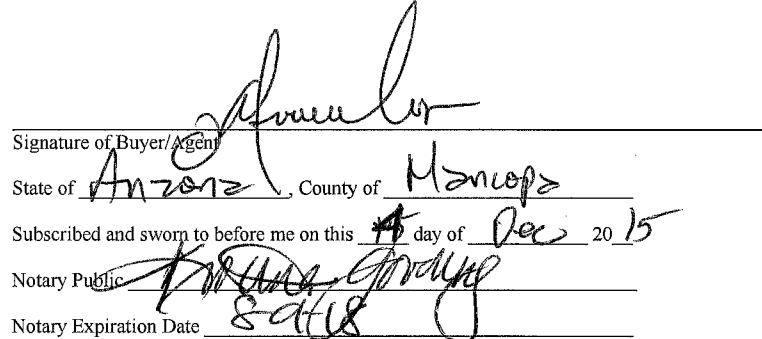 Signature of Buyer/Agent
State of Arizona, County of Maricopa
Subscribed and sworn to before me on this day of Dec 20 15
Notary Public
Notary Expiration Date 8-9-18